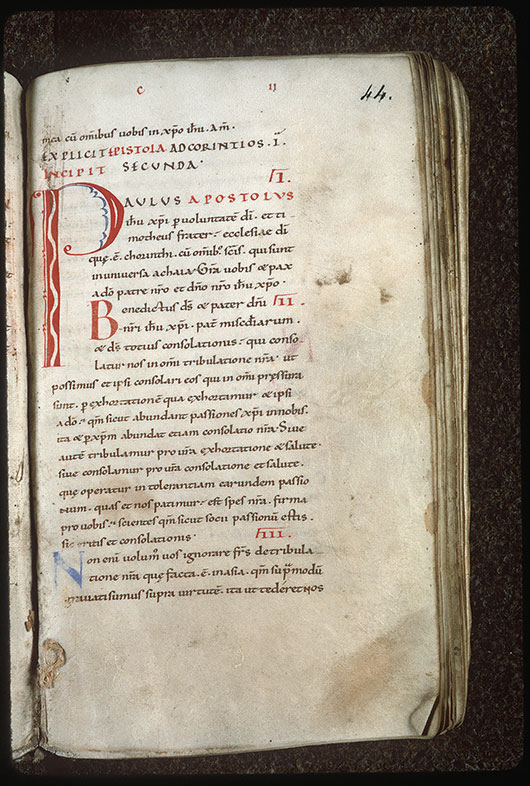 C II 44.
mea cū omībus vobis in xp̄o ihū . Am̄ .
EXPLICIT EPISTOLA AD CORINTIOS . I .
INCIPIT SECUNDA .
I.
PAULUS APOSTOLUS
ihū xp̄i p voluntatē dī . et ti
motheus frater . ecclesiae dī
quę . ē . chorinthi . cū omīb; scīs . qui sunt
in universa achaia . Grā vobis & pax
a dō patre nr̄o et dn̄o nr̄o ihū xp̄o .
Benedictus ds̄ & pater dn̄i II.
nr̄i ihū xp̄i . pat̄ misc̄diarum .
& ds̄ totius consolationis . qui conso
latur nos in om̄i tribulatione nr̄a . ut
possimus et ipsi consolari eos qui in om̄i pressura
sunt . p exhortationē qua exhortamur & ipsi
a dō . qm̄ sicut abundant passiones xp̄i in nobis .
ita & p xp̄m abundat etiam consolatio nr̄a . Sive
autē tribulamur pro vr̄a exhortatione & salute .
sive consolamur pro vr̄a consolatione et salute .
quę operatur in tolerantiam earundem passio
num . quas et nos patimur . et spes nr̄a . firma
pro vobis . scientes qm̄ sicut socii passionū estis .
sic eritis et consolationis . III.
Non enī volum̄ vos ignorare frs̄ de tribula
tione nr̄a quę facta . ē . in asia . qm̄ sup̄ modū
gravati sumus supra virtutē . ita ut tederet nos